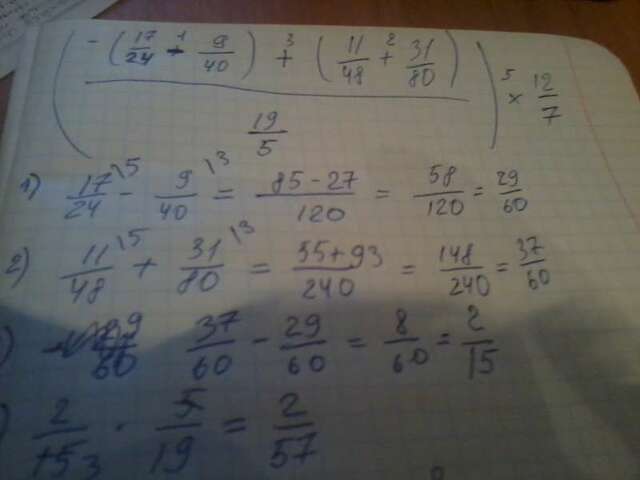 ( (-(17/24 -¹ 9/40) +³ (11/48 +² 31/80)) / (19/5) ) ×⁵ 12/7
1) 17/24 \5 - 9/40 \3 = 85-27/120 = 58/120 = 29/60
2) 11/48 \5 + 31/80 \3 = 55+93/240 = 148/240 = 37/60
) 37/60 - 29/60 = 8/60 = 2/15
) 2/15 3 · 5/19 = 2/57